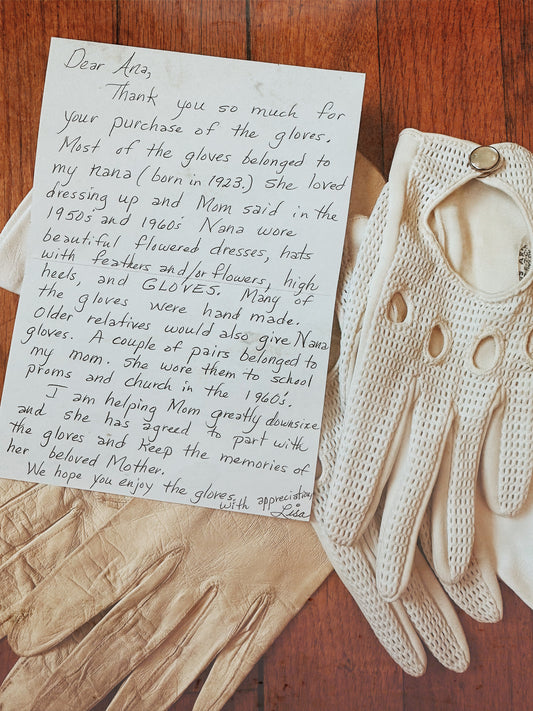 Dear Ana,
Thank you so much for
your purchase of the gloves.
Most of the gloves belonged to
my nana (born in 1923.) She loved
dressing up and Mom said in the
1950s' and 1960s' Nana wore
beautiful flowered dresses, hats
with feathers and/or flowers, high
heels, and GLOVES. Many of
the gloves were hand made.
Older relatives would also give Nana
gloves. A couple of pairs belonged to
my mom. She wore them to school
proms and church in the 1960's.
I am helping Mom greatly downsize
and she has agreed to part with
the gloves and keep the memories of
her beloved Mother.
We hope you enjoy the gloves
with appreciation,
Lisa